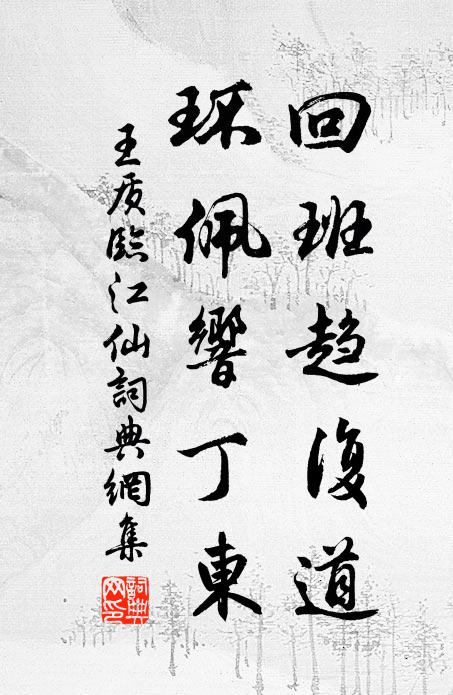 回班趋復道
环佩響丁東
王质臨江仙詞典網集
詞典网印